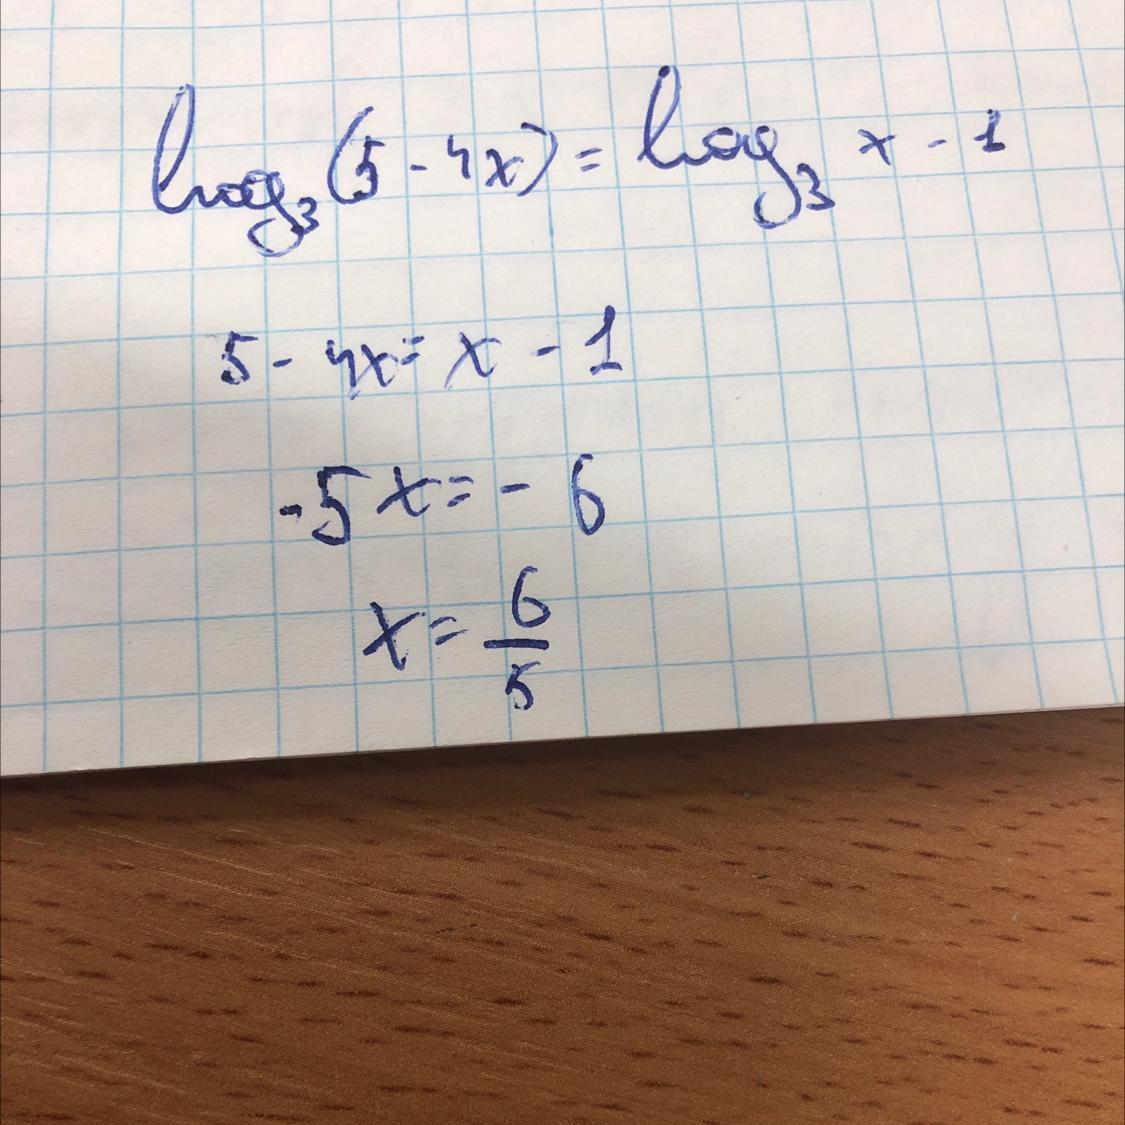 log₃(5 - 4x) = log₃ x - 1
5 - 4x = x - 1
-5x = - 6
x = 6/5